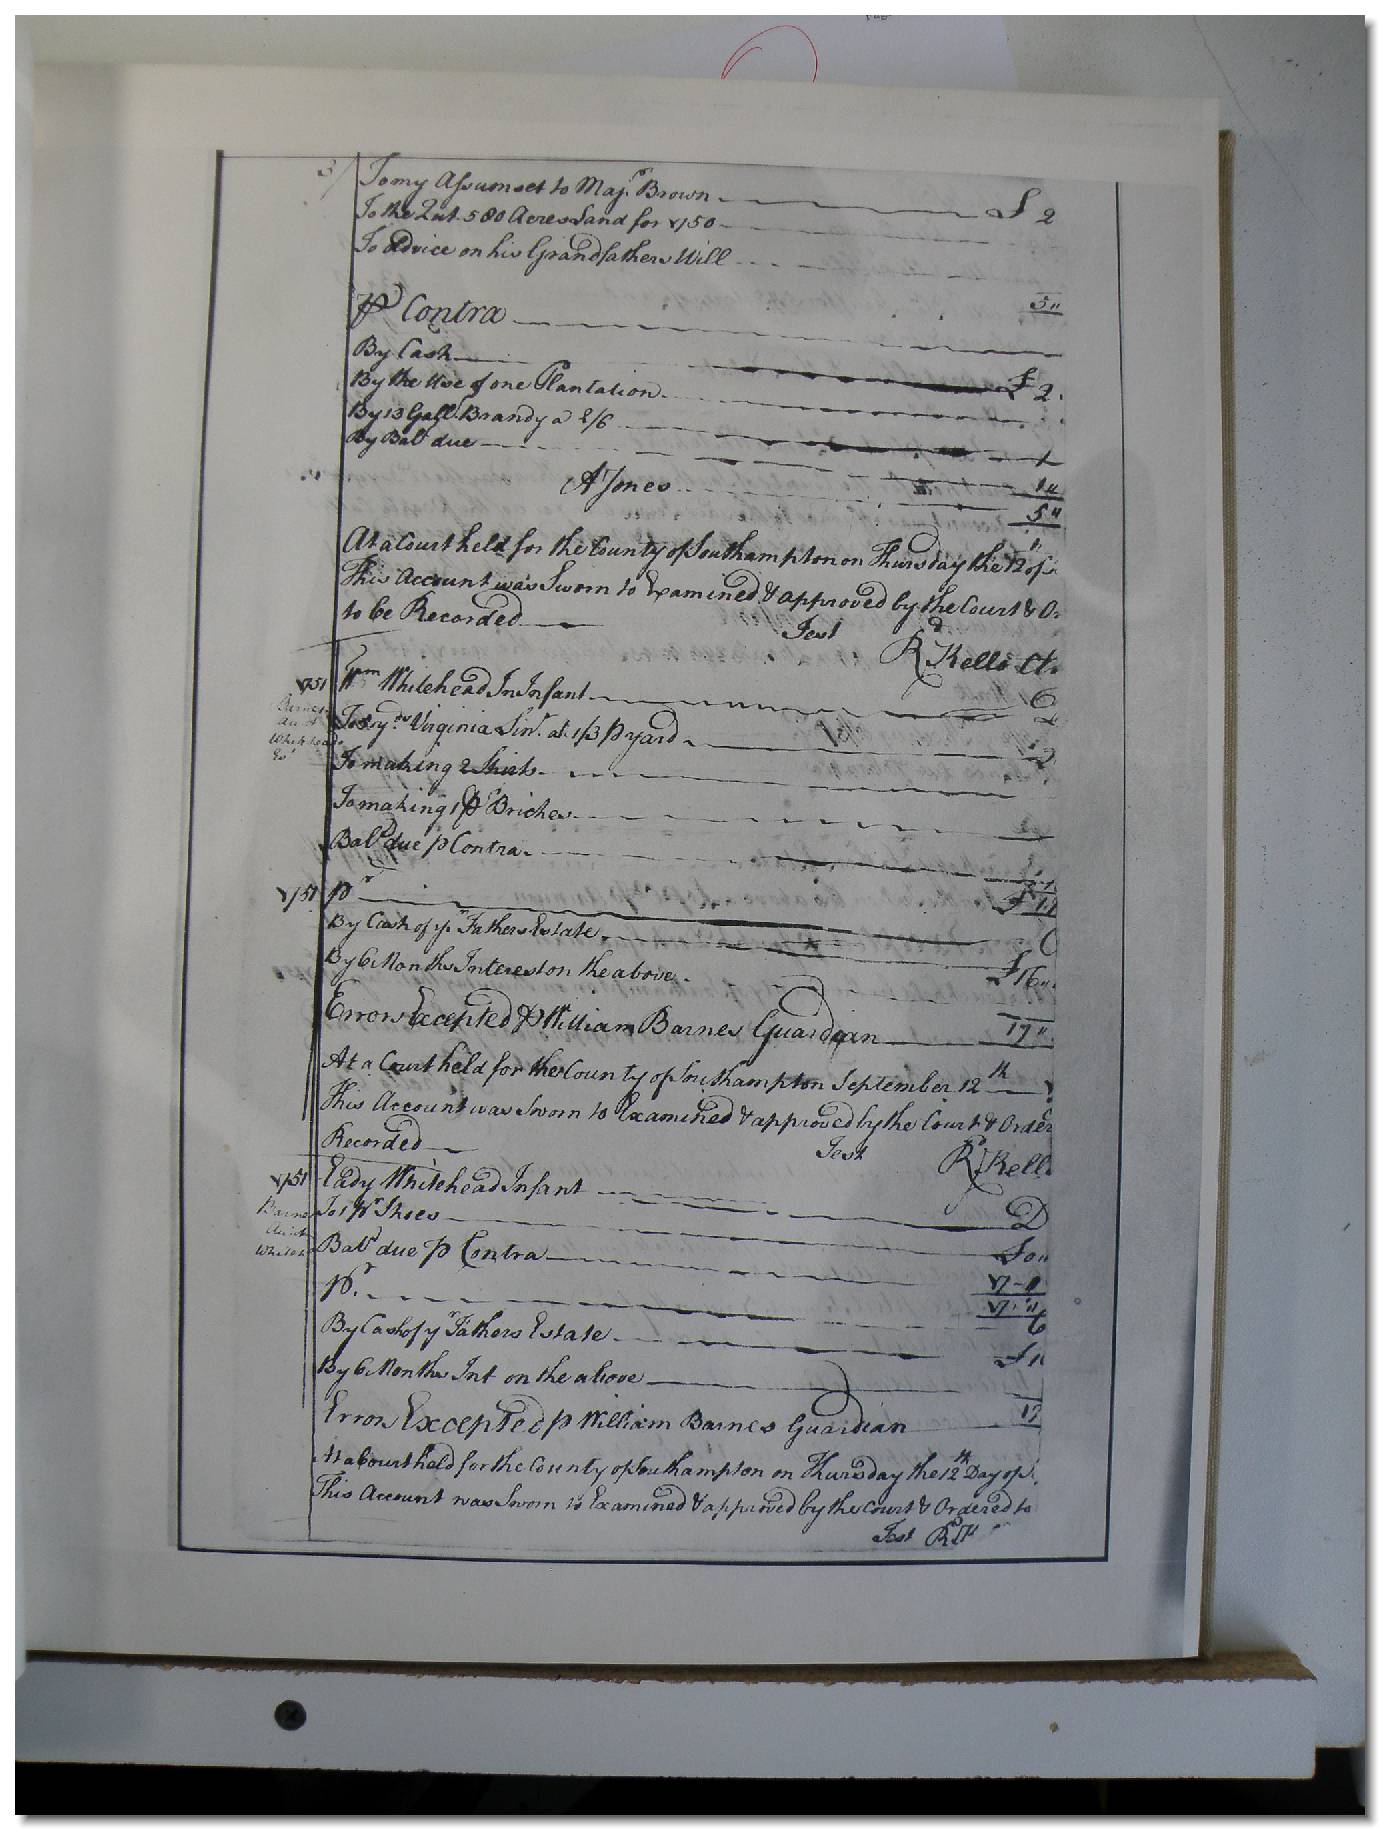 3/ To my Assumset to Majr. Brown £ 2
To the Quit. 580 Acres Land for 1750
To Advice on his Grandfathers Will
5"
Pr Contra
By Cash £ 2
By the Use of one Plantation
By 13 Gall. Brandy a 2/6 1
By Balr due
A Jones 1"
5"
At a Court held for the County of Southampton on Thursday the 12th of
This Account was Sworn to Examined & approved by the Court & Or
to be Recorded Test Rd Kello Ct.
1751 Wm Whitehead In Infant
Barnes
Acct
Whitehead
To yds Virginia Lin. at 1/3 P yard
To making 2 Shirts
To making 1 Pr Briches
Balr due p Contra
£ 17
1751 Pr C
By Cash of yr Fathers Estate £ 16"
By 6 Months Interest on the above
17"
Errors Excepted P William Barnes Guardian
At a Court held for the County of Southampton September 12th
This Account was Sworn to Examined & approved by the Court & Order
Recorded Test Rd Kell
1751 Eady Whitehead Infant D
Barnes
Acct
Whitehead
To 1 Pr Shoes £ 0"
Balr due p Contra 17
17"
Pr. C
By Cash of yr Fathers Estate £ 1
By 6 Months Int on the above
17
Errors Excepted p William Barnes Guardian
At a Court held for the County of Southampton on Thursday the 12th Day of
This Account was Sworn to Examined & approved by the Court & Ordered to
Test Rd K